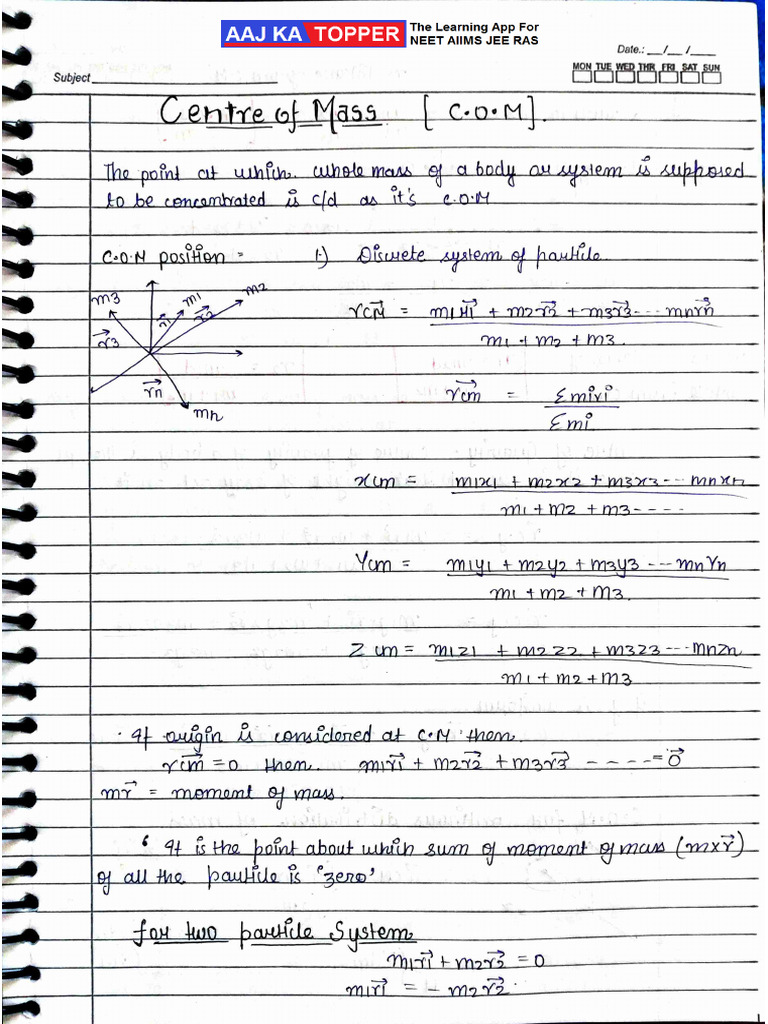 AAJ KA TOPPER The Learning App For
NEET AIIMS JEE RAS
Date.: __/__/____
Subject
MON TUE WED THR FRI SAT SUN
Centre of Mass [C.O.M].
The point at which whole mass of a body or system is supposed
to be concentrated is c/d as it's C.O.M
C.O.M position = 1.) Discrete system of particle.
m3 m1 m2
r⃗1 r⃗2
r⃗3
r⃗n
mn
r⃗cm = m1r⃗1 + m2r⃗2 + m3r⃗3 --- mnr⃗n
m1 + m2 + m3.
r⃗cm = Σmiri
Σmi
xcm = m1x1 + m2x2 + m3x3 --- mnxn
m1 + m2 + m3 - - - -
Ycm = m1y1 + m2y2 + m3y3 --- mnYn
m1 + m2 + m3.
Zcm = m1z1 + m2z2 + m3z3 --- mnzn
m1 + m2 + m3
· If origin is considered at C.M then
r⃗cm = 0 then m1r⃗1 + m2r⃗2 + m3r⃗3 - - - - = 0⃗
mr⃗ = moment of mass.
‘ It is the point about which sum of moment of mass (m×r⃗)
of all the particle is ‘zero’
for two particle System
m1r⃗1 + m2r⃗2 = 0
m1r⃗1 = - m2r⃗2.